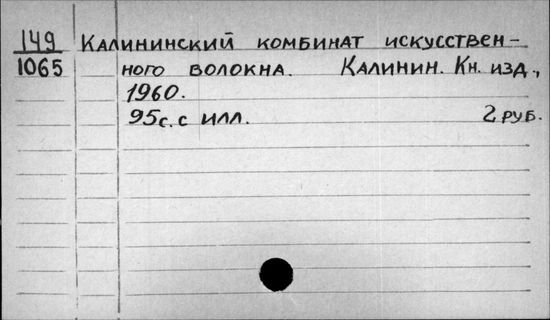 149 Калининский комбинат искусствен-
1065 ного волокна. Калинин. Кн. изд.,
1960.
95с. с илл. 2 руб.